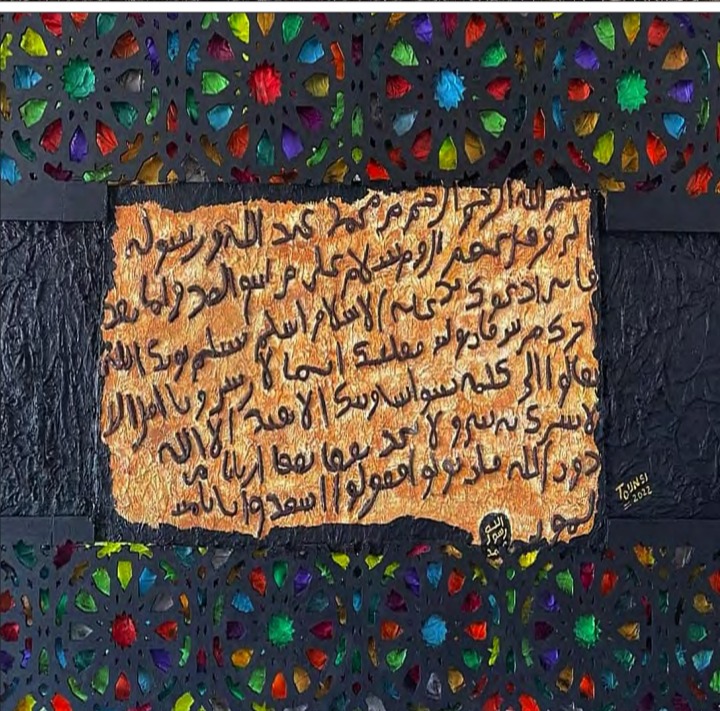 بسم الله الرحمن الرحيم من محمد عبد الله ورسوله
الى هرقل عظيم الروم سلام على من اتبع الهدى اما بعد
فانى ادعوك بدعاية الاسلام اسلم تسلم يوتك الله
فان توليت فعليك اثم
تعالوا الى كلمة سوا بيننا وبينك الا نعبد الا الله
نشرك به شيا ولا يتخذ بعضنا بعضا اربابا من
دون الله فان تولوا فقولوا اشهدوا بانا
الله
رسول
محمد
TOUNSI
2022